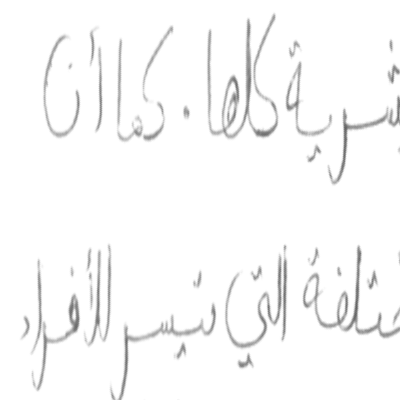 بشرية كلها. كما أن
ختلفة التي تيسر للأفراد